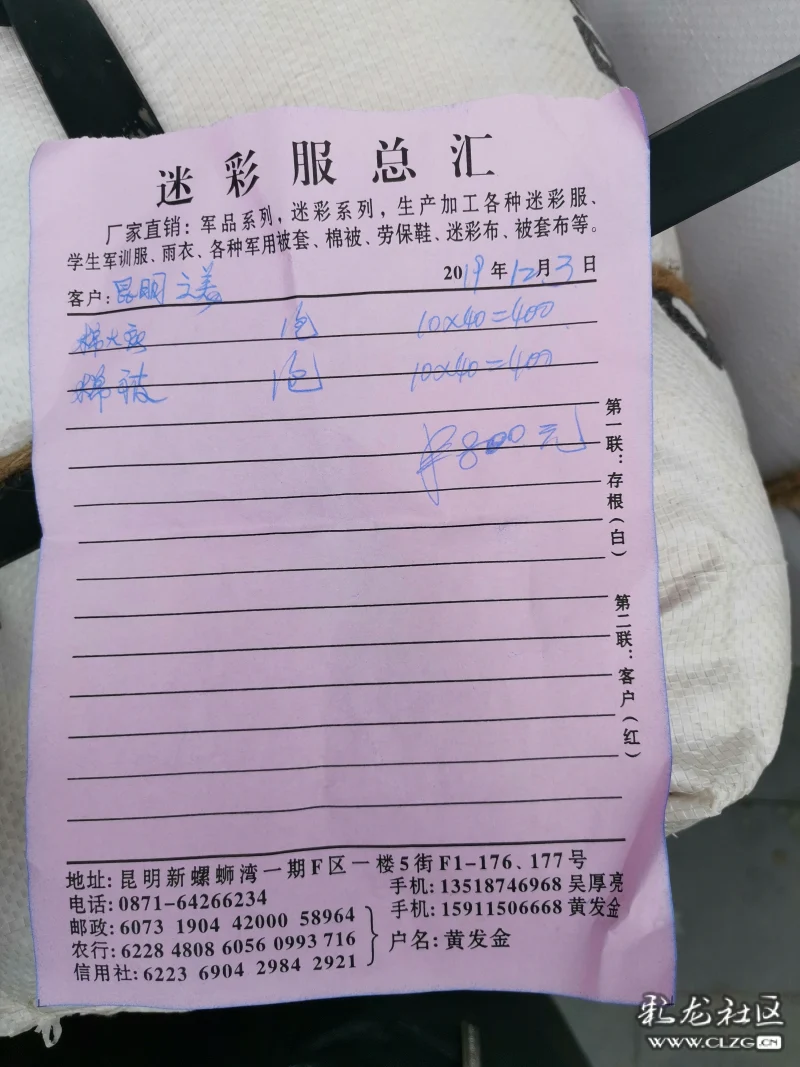 迷彩服总汇
厂家直销：军品系列，迷彩系列，生产加工各种迷彩服、
学生军训服、雨衣、各种军用被套、棉被、劳保鞋、迷彩布、被套布等。
客户：昆明 2019年12月3日
棉大衣 1包 10×40=400
棉被 1包 10×40=400
¥800元
第一联：存根（白）
第二联：客户（红）
地址：昆明新螺蛳湾一期F区一楼5街F1-176、177号
电话：0871-64266234
手机：13518746968 吴厚亮
邮政：6073 1904 42000 58964
手机：15911506668 黄发金
农行：6228 4808 6056 0993 716
户名：黄发金
信用社：6223 6904 2984 2921
彩龙社区
WWW.CLZG.CN